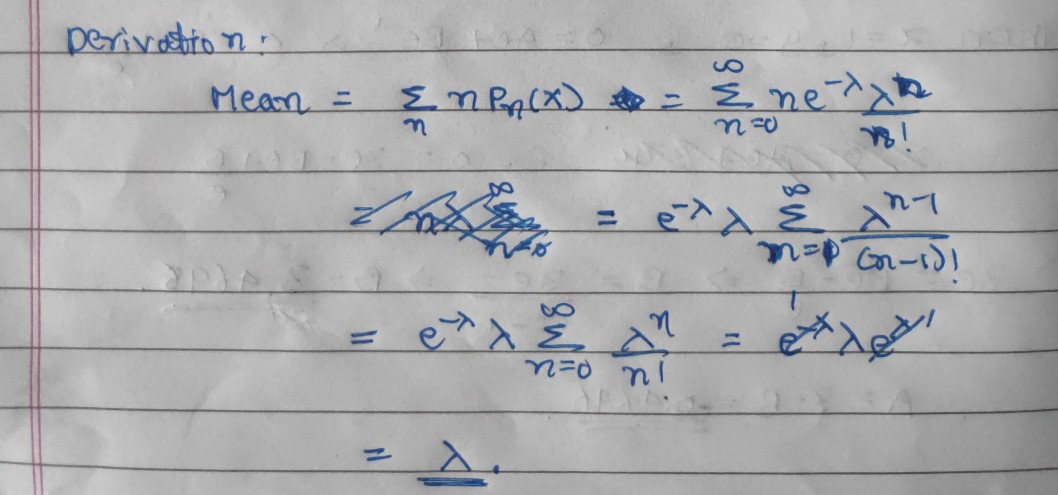 Derivation:
Mean = Σ_n n P_n(x) = Σ_{n=0}^{∞} n e^{-λ} λ^n / n!
= e^{-λ} λ Σ_{n=1}^{∞} λ^{n-1} / (n-1)!
= e^{-λ} λ Σ_{n=0}^{∞} λ^n / n! = e^{-λ} λ e^{λ}
= λ.